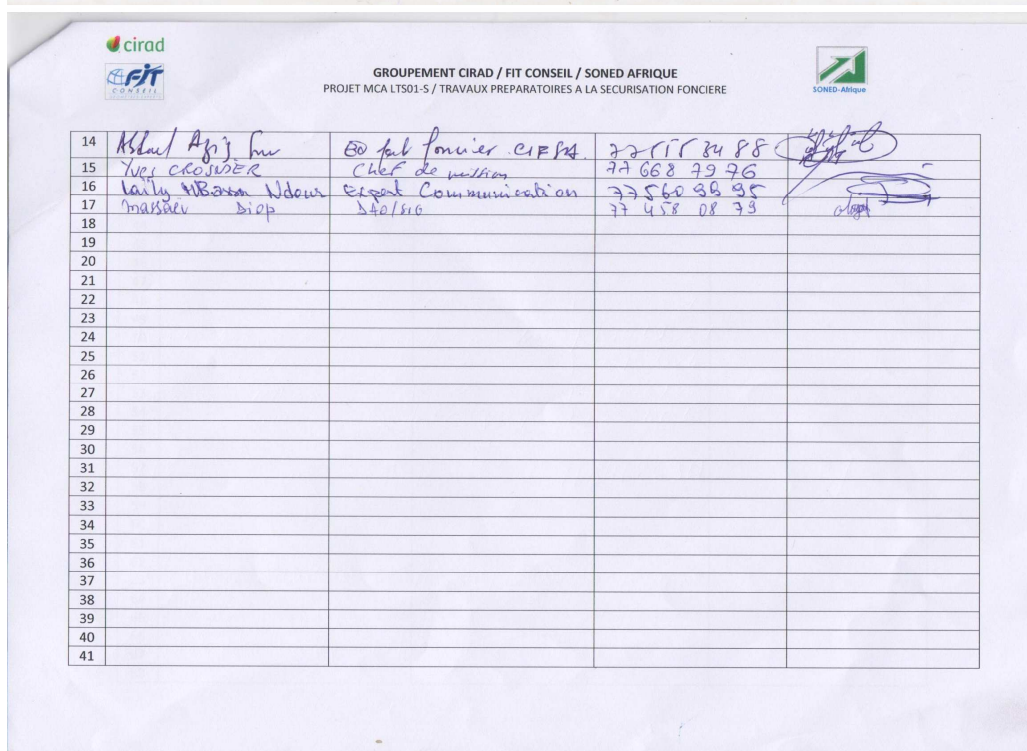 cirad
FIT
CONSEIL
GROUPEMENT CIRAD / FIT CONSEIL / SONED AFRIQUE
PROJET MCA LTS01-S / TRAVAUX PREPARATOIRES A LA SECURISATION FONCIERE
SONED-Afrique
14 Abdoul Aziz foncier
15 Yves CROSNIER Chef de mission 77 668 79 76
16 Ndour Expert Communication
17 Diop DAO/SIG 77 458 08 79
18
19
20
21
22
23
24
25
26
27
28
29
30
31
32
33
34
35
36
37
38
39
40
41